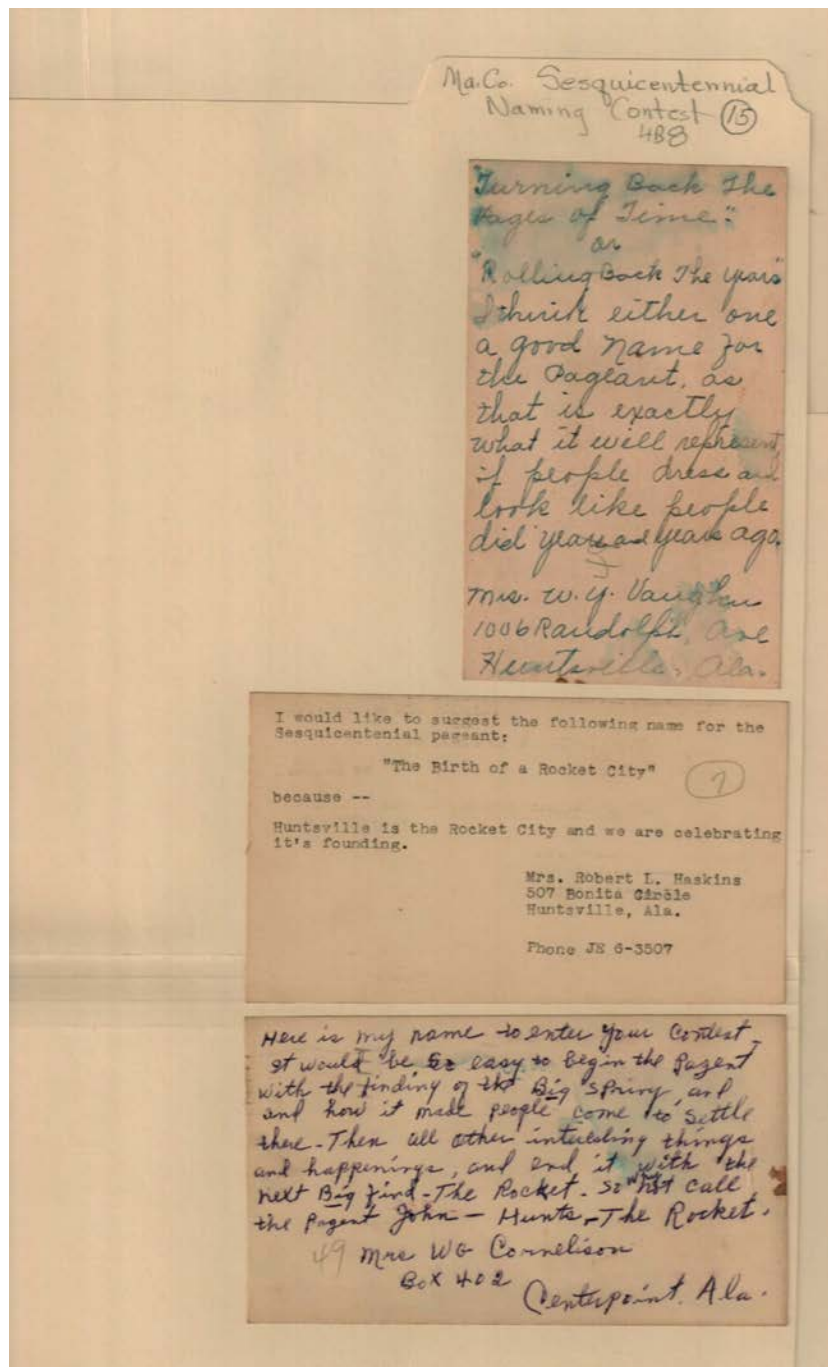 Ma. Co. Sesquicentennial
Naming Contest (15)
4B8
"Turning Back The
Pages of Time."
or
"Rolling Back The years"
I think either one
a good name for
the Pageant, as
that is exactly
what it will represent,
if people dress and
look like people
did years and years ago.
Mrs. W. Y. Vaughn
1006 Randolph, Ave
Huntsville, Ala.
I would like to suggest the following name for the
Sesquicentenial pageant:
"The Birth of a Rocket City"
7
because --
Huntsville is the Rocket City and we are celebrating
it's founding.
Mrs. Robert L. Haskins
507 Bonita Circle
Huntsville, Ala.
Phone JE 6-3507
Here is my name to enter your contest -
It would be so easy to begin the pagent
with the finding of the Big Spring, and
and how it made people come to settle
there - Then all other interesting things
and happenings, and end it with the
next Big find - The Rocket. So why not call
the pagent John - Hunts - The Rocket.
49 Mrs WG Cornelison
Box 402
Centerpoint. Ala.